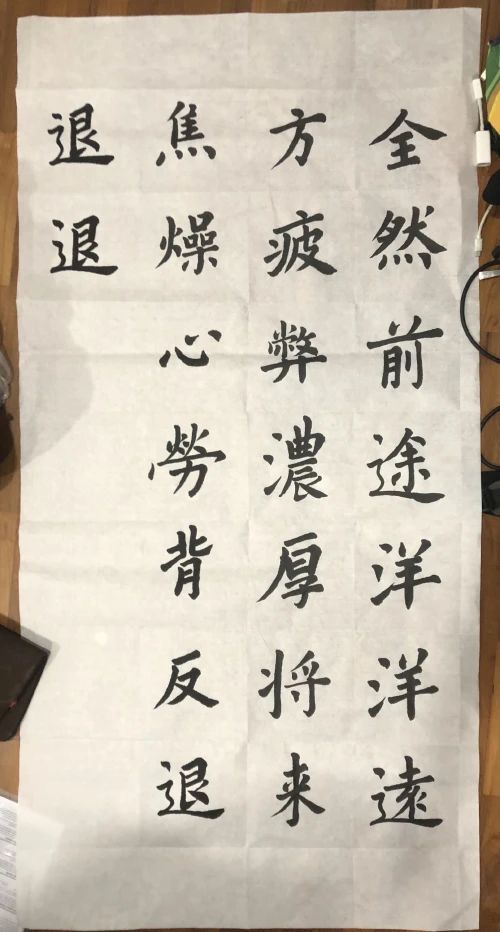 全然前途洋洋遠
方疲弊濃厚将来
焦燥心勞背反退
退退